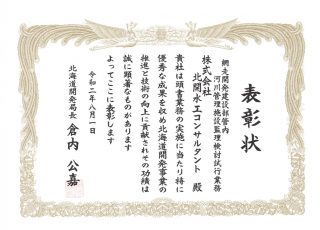 表彰状
網走開発建設部管内
河川管理施設監理検討試行業務
株式会社
北開水工コンサルタント 殿
貴社は頭書業務の実施に当たり特に
優秀な成果を収め北海道開発事業の
推進と技術の向上に貢献されその功績は
誠に顕著なものがあります
よってここに表彰します
令和二年八月一日
北海道開発局長 倉内 公嘉